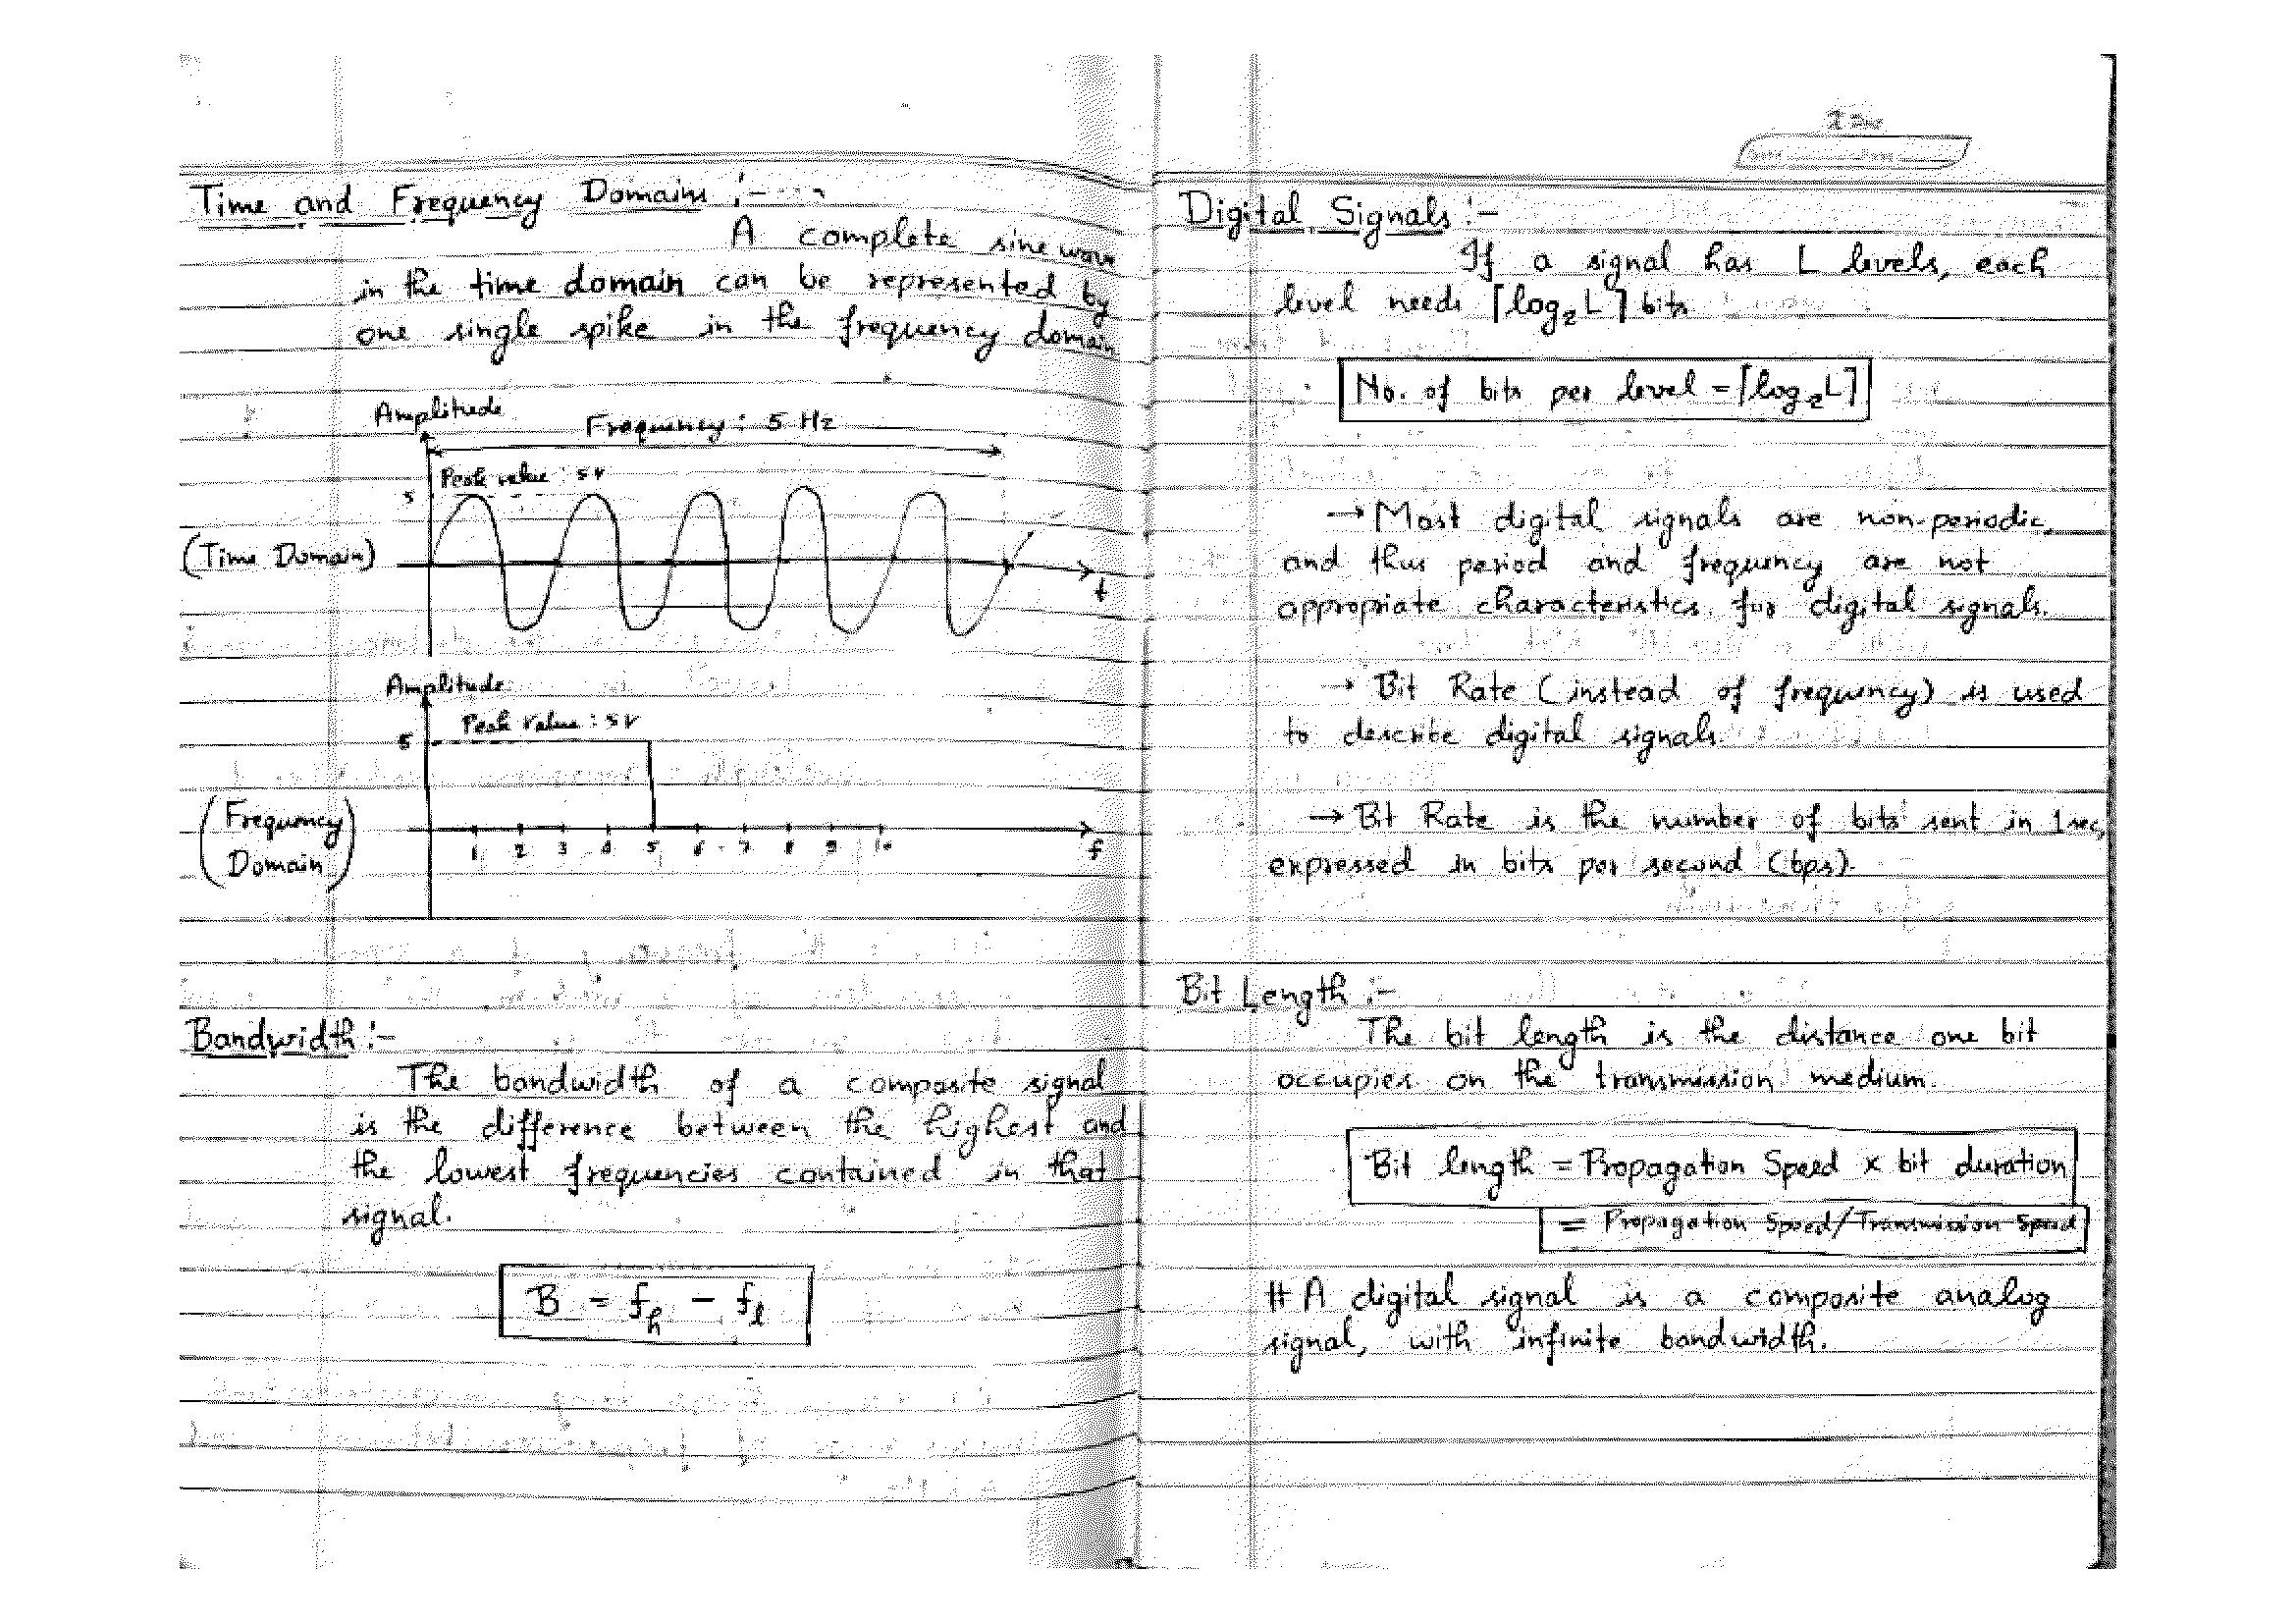 Time and Frequency Domains :-
A complete sine wave
in the time domain can be represented by
one single spike in the frequency domain
Amplitude
Frequency : 5 Hz
Peak value : 5V
5
(Time Domain)
t
Amplitude
Peak value : 5V
5
(Frequency
Domain)
1 2 3 4 5 6 7 8 9 10 f
Bandwidth :-
The bandwidth of a composite signal
is the difference between the highest and
the lowest frequencies contained in that
signal.
B = fh - fl
Digital Signals :-
If a signal has L levels, each
level needs ⌈log2L⌉ bits
No. of bits per level = ⌈log2L⌉
→ Most digital signals are non-periodic,
and thus period and frequency are not
appropriate characteristics for digital signals.
→ Bit Rate (instead of frequency) is used
to describe digital signals.
→ Bit Rate is the number of bits sent in 1sec,
expressed in bits per second (bps).
Bit Length :-
The bit length is the distance one bit
occupies on the transmission medium.
Bit length = Propagation Speed x bit duration
= Propagation Speed/Transmission Speed
# A digital signal is a composite analog
signal, with infinite bandwidth.